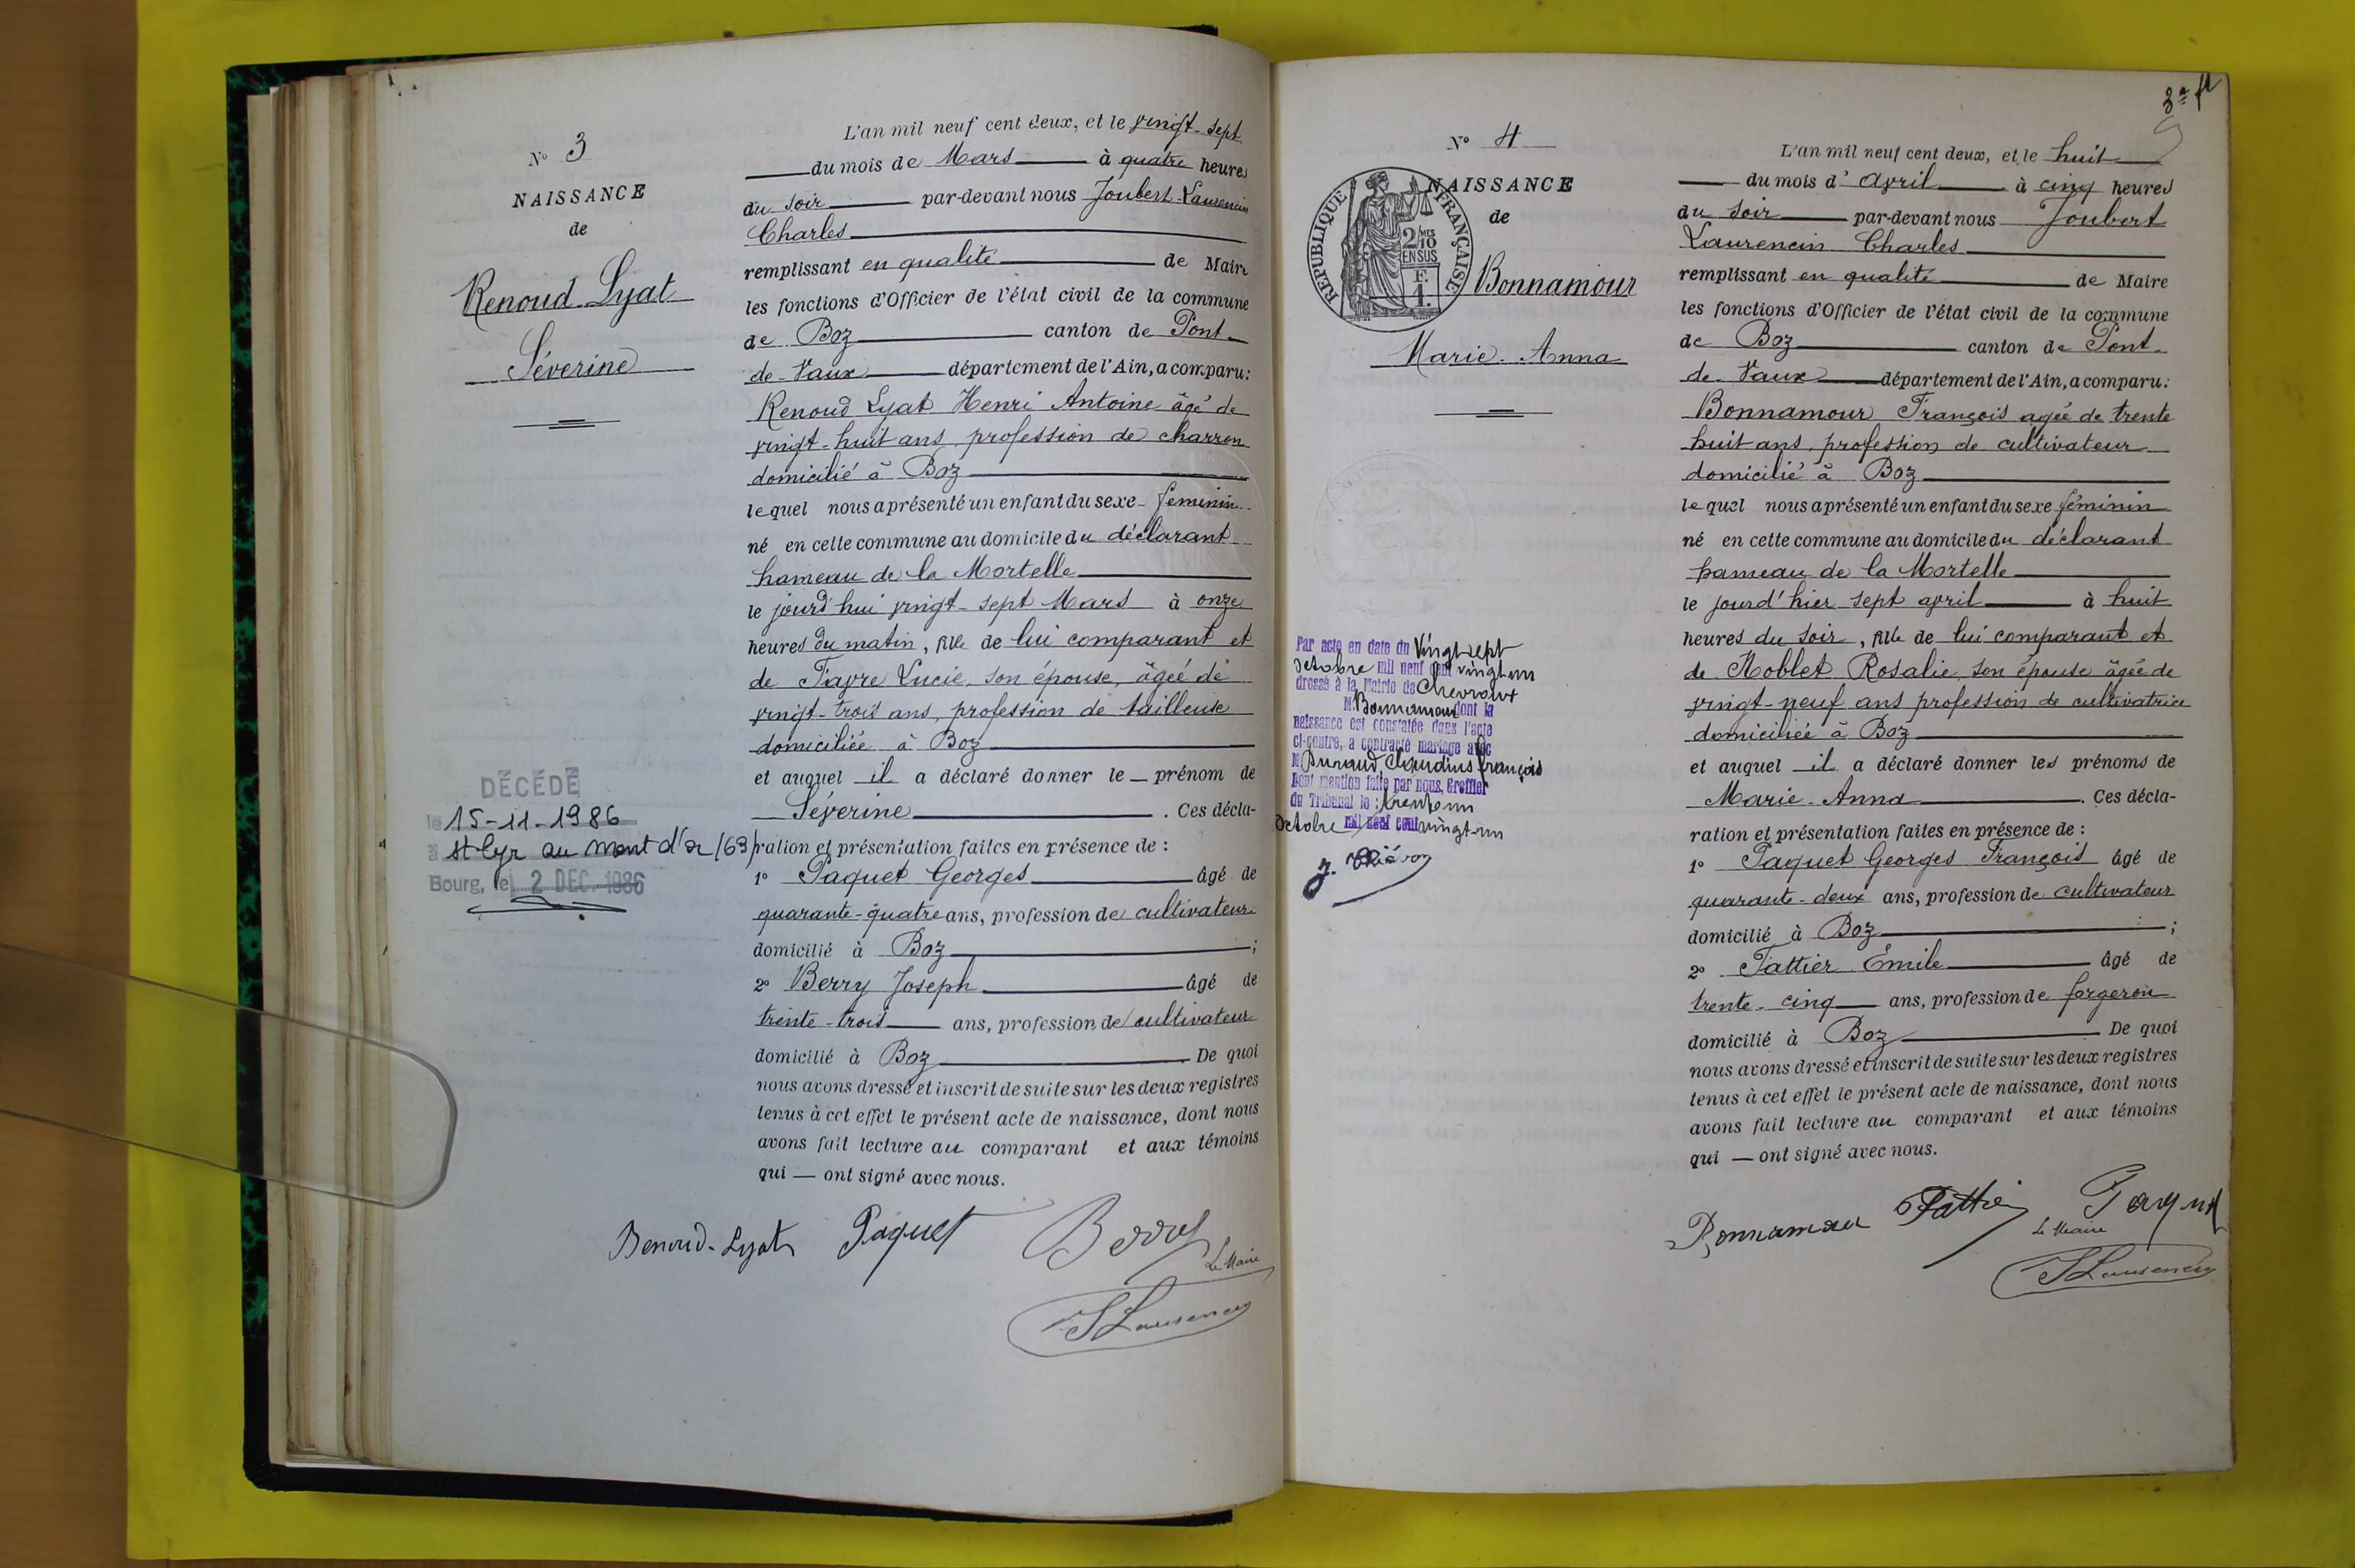 N° 3
NAISSANCE
de
Renoud Lyat
Séverine
DÉCÉDÉ
le 15-11-1986
à St Cyr au Mont d'Or (69)
Bourg, le 2 DEC. 1986
L'an mil neuf cent deux, et le vingt-sept
du mois de Mars à quatre heures
du soir par-devant nous Joubert-Laurencin
Charles
remplissant en qualité de Maire
les fonctions d'Officier de l'état civil de la commune
de Boz canton de Pont-
de-Vaux département de l'Ain, a comparu:
Renoud Lyat Henri Antoine âgé de
vingt-huit ans, profession de charron
domicilié à Boz
lequel nous a présenté un enfant du sexe féminin
né en cette commune au domicile du déclarant
hameau de la Mortelle
le jourd'hui vingt-sept Mars à onze
heures du matin, fille de lui comparant et
de Favre Lucie, son épouse, âgée de
vingt-trois ans, profession de tailleuse
domiciliée à Boz
et auquel il a déclaré donner le prénom de
Séverine. Ces décla-
ration et présentation faites en présence de :
1° Paquet Georges âgé de
quarante-quatre ans, profession de cultivateur
domicilié à Boz ;
2° Berry Joseph âgé de
trente-trois ans, profession de cultivateur
domicilié à Boz De quoi
nous avons dressé et inscrit de suite sur les deux registres
tenus à cet effet le présent acte de naissance, dont nous
avons fait lecture au comparant et aux témoins
qui — ont signé avec nous.
Renoud-Lyat Paquet Berry
Le Maire
JLaurencin
3e fl
N° 4
NAISSANCE
de
REPUBLIQUE FRANÇAISE
2/10 MES
EN SUS
F.
1.
Bonnamour
Marie-Anna
Par acte en date du Vingt sept
octobre mil neuf cent vingt un
dressé à la Mairie de Chevroux
M Bonnamour dont la
naissance est constatée dans l'acte
ci-contre, a contracté mariage avec
M Durand, Claudius François
Dont mention faite par nous, Greffier
du Tribunal le : trente un
octobre mil neuf cent vingt-un
L'an mil neuf cent deux, et le huit
du mois d'avril à cinq heures
du soir par-devant nous Joubert
Laurencin Charles
remplissant en qualité de Maire
les fonctions d'Officier de l'état civil de la commune
de Boz canton de Pont-
de-Vaux département de l'Ain, a comparu:
Bonnamour François agée de trente
huit ans, profession de cultivateur
domicilié à Boz
lequel nous a présenté un enfant du sexe féminin
né en cette commune au domicile du déclarant
hameau de la Mortelle
le jourd'hier sept avril à huit
heures du soir, fille de lui comparant et
de Noblet Rosalie, son épouse âgée de
vingt-neuf ans profession de cultivatrice
domiciliée à Boz
et auquel il a déclaré donner les prénoms de
Marie-Anna. Ces décla-
ration et présentation faites en présence de :
1° Paquet Georges François âgé de
quarante-deux ans, profession de cultivateur
domicilié à Boz ;
2° Pattier Émile âgé de
trente-cinq ans, profession de forgeron
domicilié à Boz De quoi
nous avons dressé et inscrit de suite sur les deux registres
tenus à cet effet le présent acte de naissance, dont nous
avons fait lecture au comparant et aux témoins
qui — ont signé avec nous.
Bonnamour Pattier Paquet
Le Maire
JLaurencin